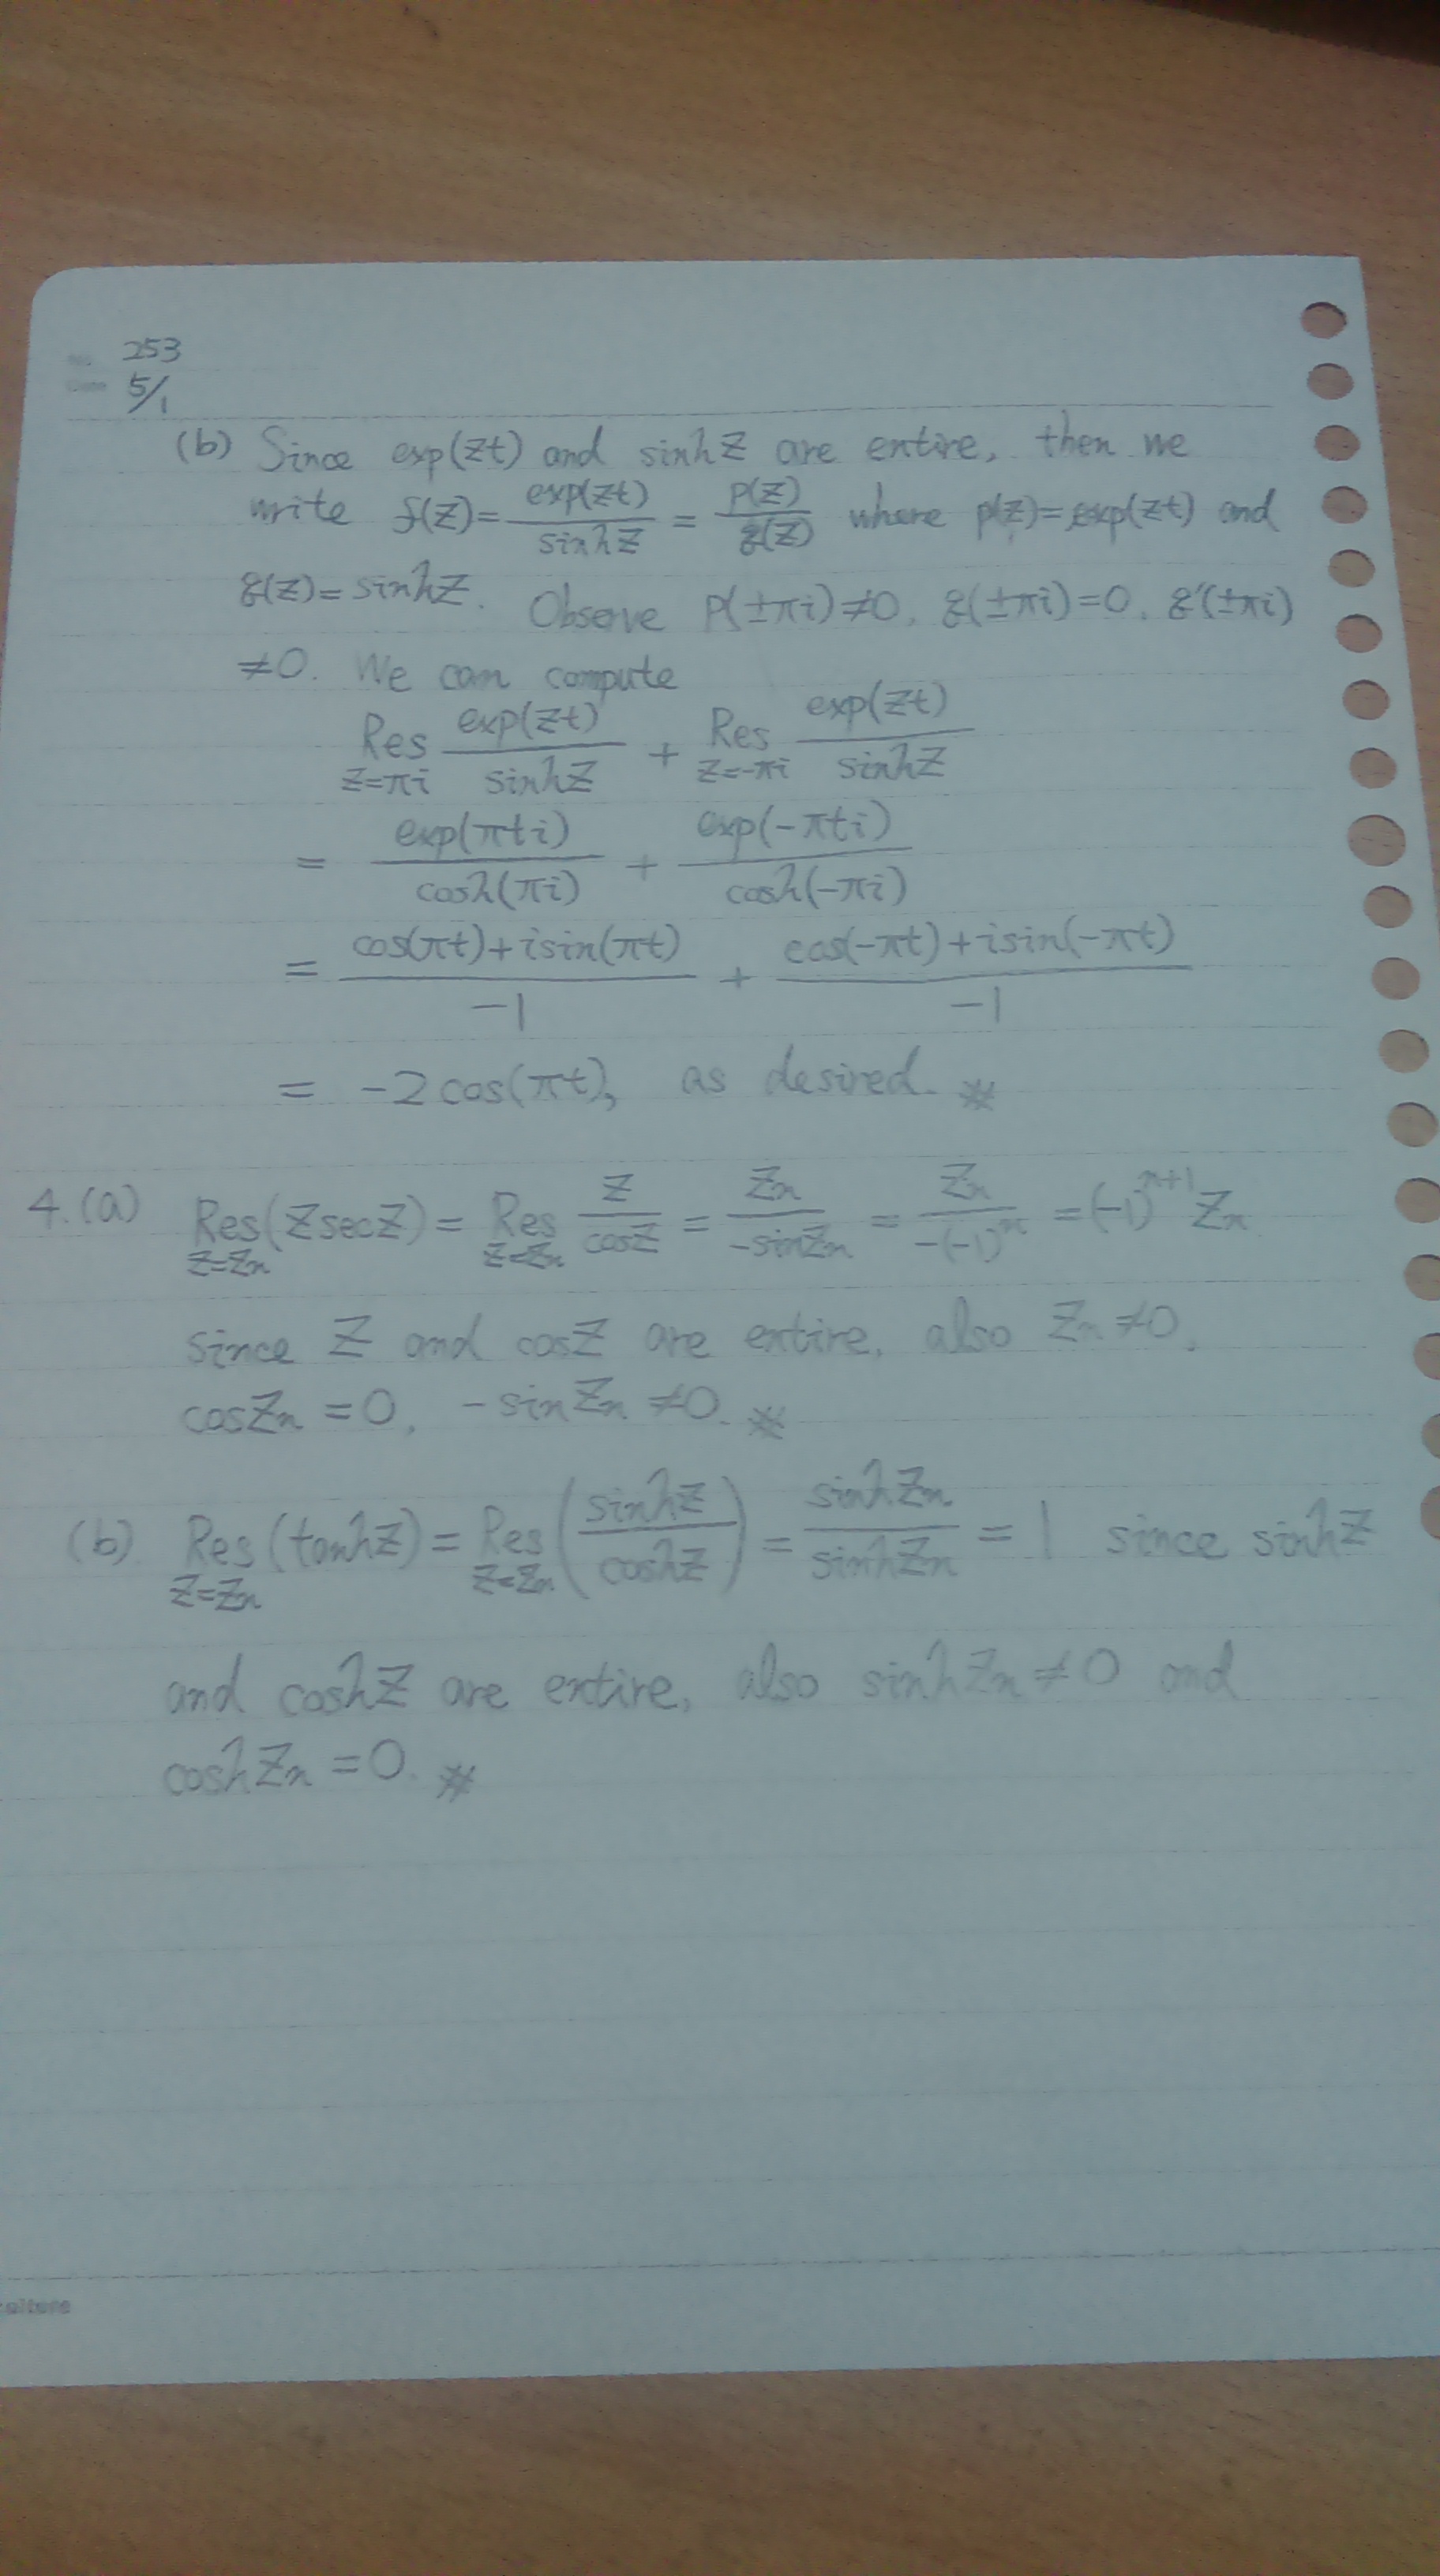 No. 253
Date 5/1
(b) Since exp(zt) and sinhz are entire, then we
write f(z)= exp(zt)/sinhz = p(z)/q(z) where p(z)=exp(zt) and
q(z)=sinhz. Observe p(±πi)≠0, q(±πi)=0, q'(±πi)
≠0. We can compute
Res_{z=πi} exp(zt)/sinhz + Res_{z=-πi} exp(zt)/sinhz
= exp(πti)/cosh(πi) + exp(-πti)/cosh(-πi)
= (cos(πt)+isin(πt))/-1 + (cos(-πt)+isin(-πt))/-1
= -2cos(πt), as desired. #
4. (a) Res_{z=z_n}(zsecz) = Res_{z=z_n} z/cosz = z_n/-sinz_n = z_n/-(-1)^n = (-1)^{n+1} z_n
since z and cosz are entire, also z_n≠0,
cosz_n=0, -sinz_n≠0. #
(b) Res_{z=z_n}(tanhz) = Res_{z=z_n}(sinhz/coshz) = sinhz_n/sinhz_n = 1 since sinhz
and coshz are entire, also sinhz_n≠0 and
coshz_n=0. #